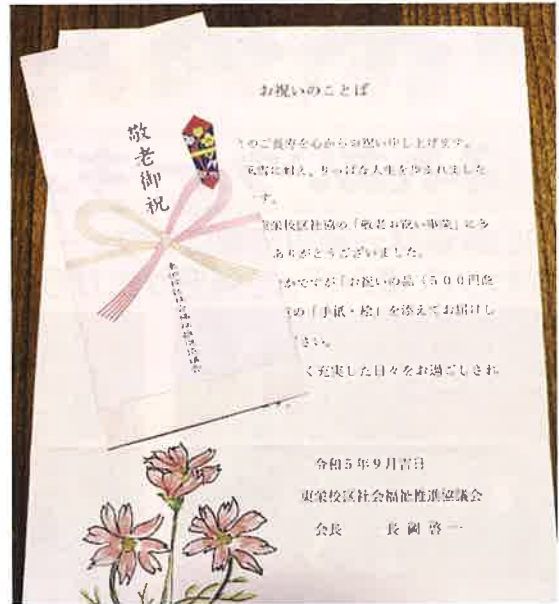 お祝いのことば
敬老御祝
のご長寿を心からお祝い申し上げます。
に耐え、りっぱな人生を歩まれました
す。
東栄校区社協の「敬老お祝い事業」に
ありがとうございました。
かですが「お祝いの品(500円
の「手紙・絵」を添えてお届けし
さい。
く充実した日々をお過ごしされ
す。
東栄校区社会福祉推進協議会
令和5年9月吉日
東栄校区社会福祉推進協議会
会長 長岡啓一